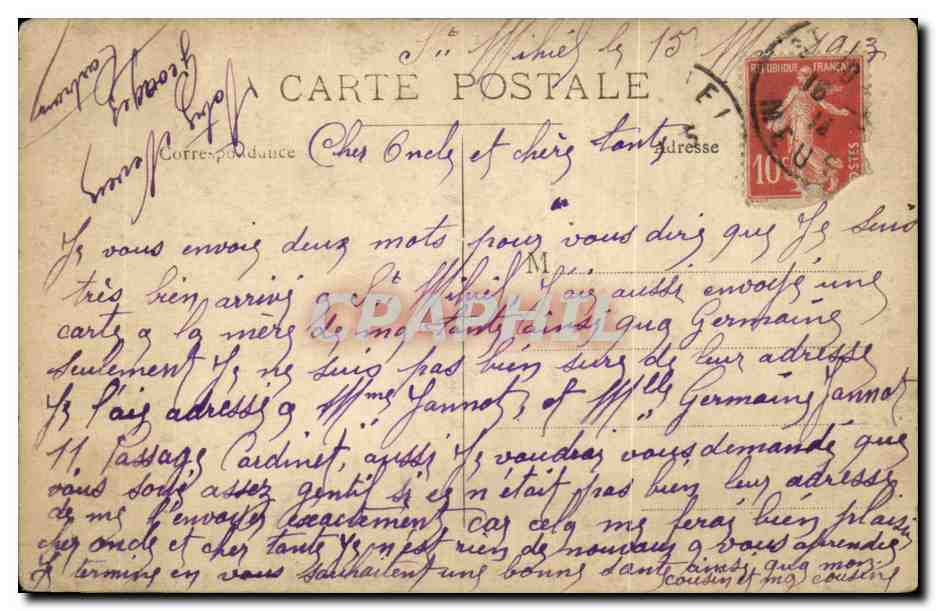 St Mihiel le 15 Mai 1913
CARTE POSTALE
Correspondance
Adresse
Cher Oncle et chère tante
Je vous envoie deux mots pour vous dire que Je suis
très bien arrivé a St Mihiel J'ai aussi envoyé une
carte a la mère de ma tante ainsi qua Germaine
seulement Je ne suis pas bien sure de leur adresse
Je l'aie adressé a Mme Jannot, et Mlle Germaine Jannot
11 Passage Cardinet, aussi Je voudrai vous demandé que
vous soyé assez gentil si ce n'était pas bien leur adresse
de me l'envoyer exactement car cela me ferai bien plaisir
cher oncle et cher tante Je n'est rien de nouveau a vous aprendre
Je termine en vous souhaitent une bonne sante ainsi qua mon
cousin et ma cousine
Votre Neveu
Georges
M
CPAPHIL
REPUBLIQUE FRANÇAISE
10c
POSTES